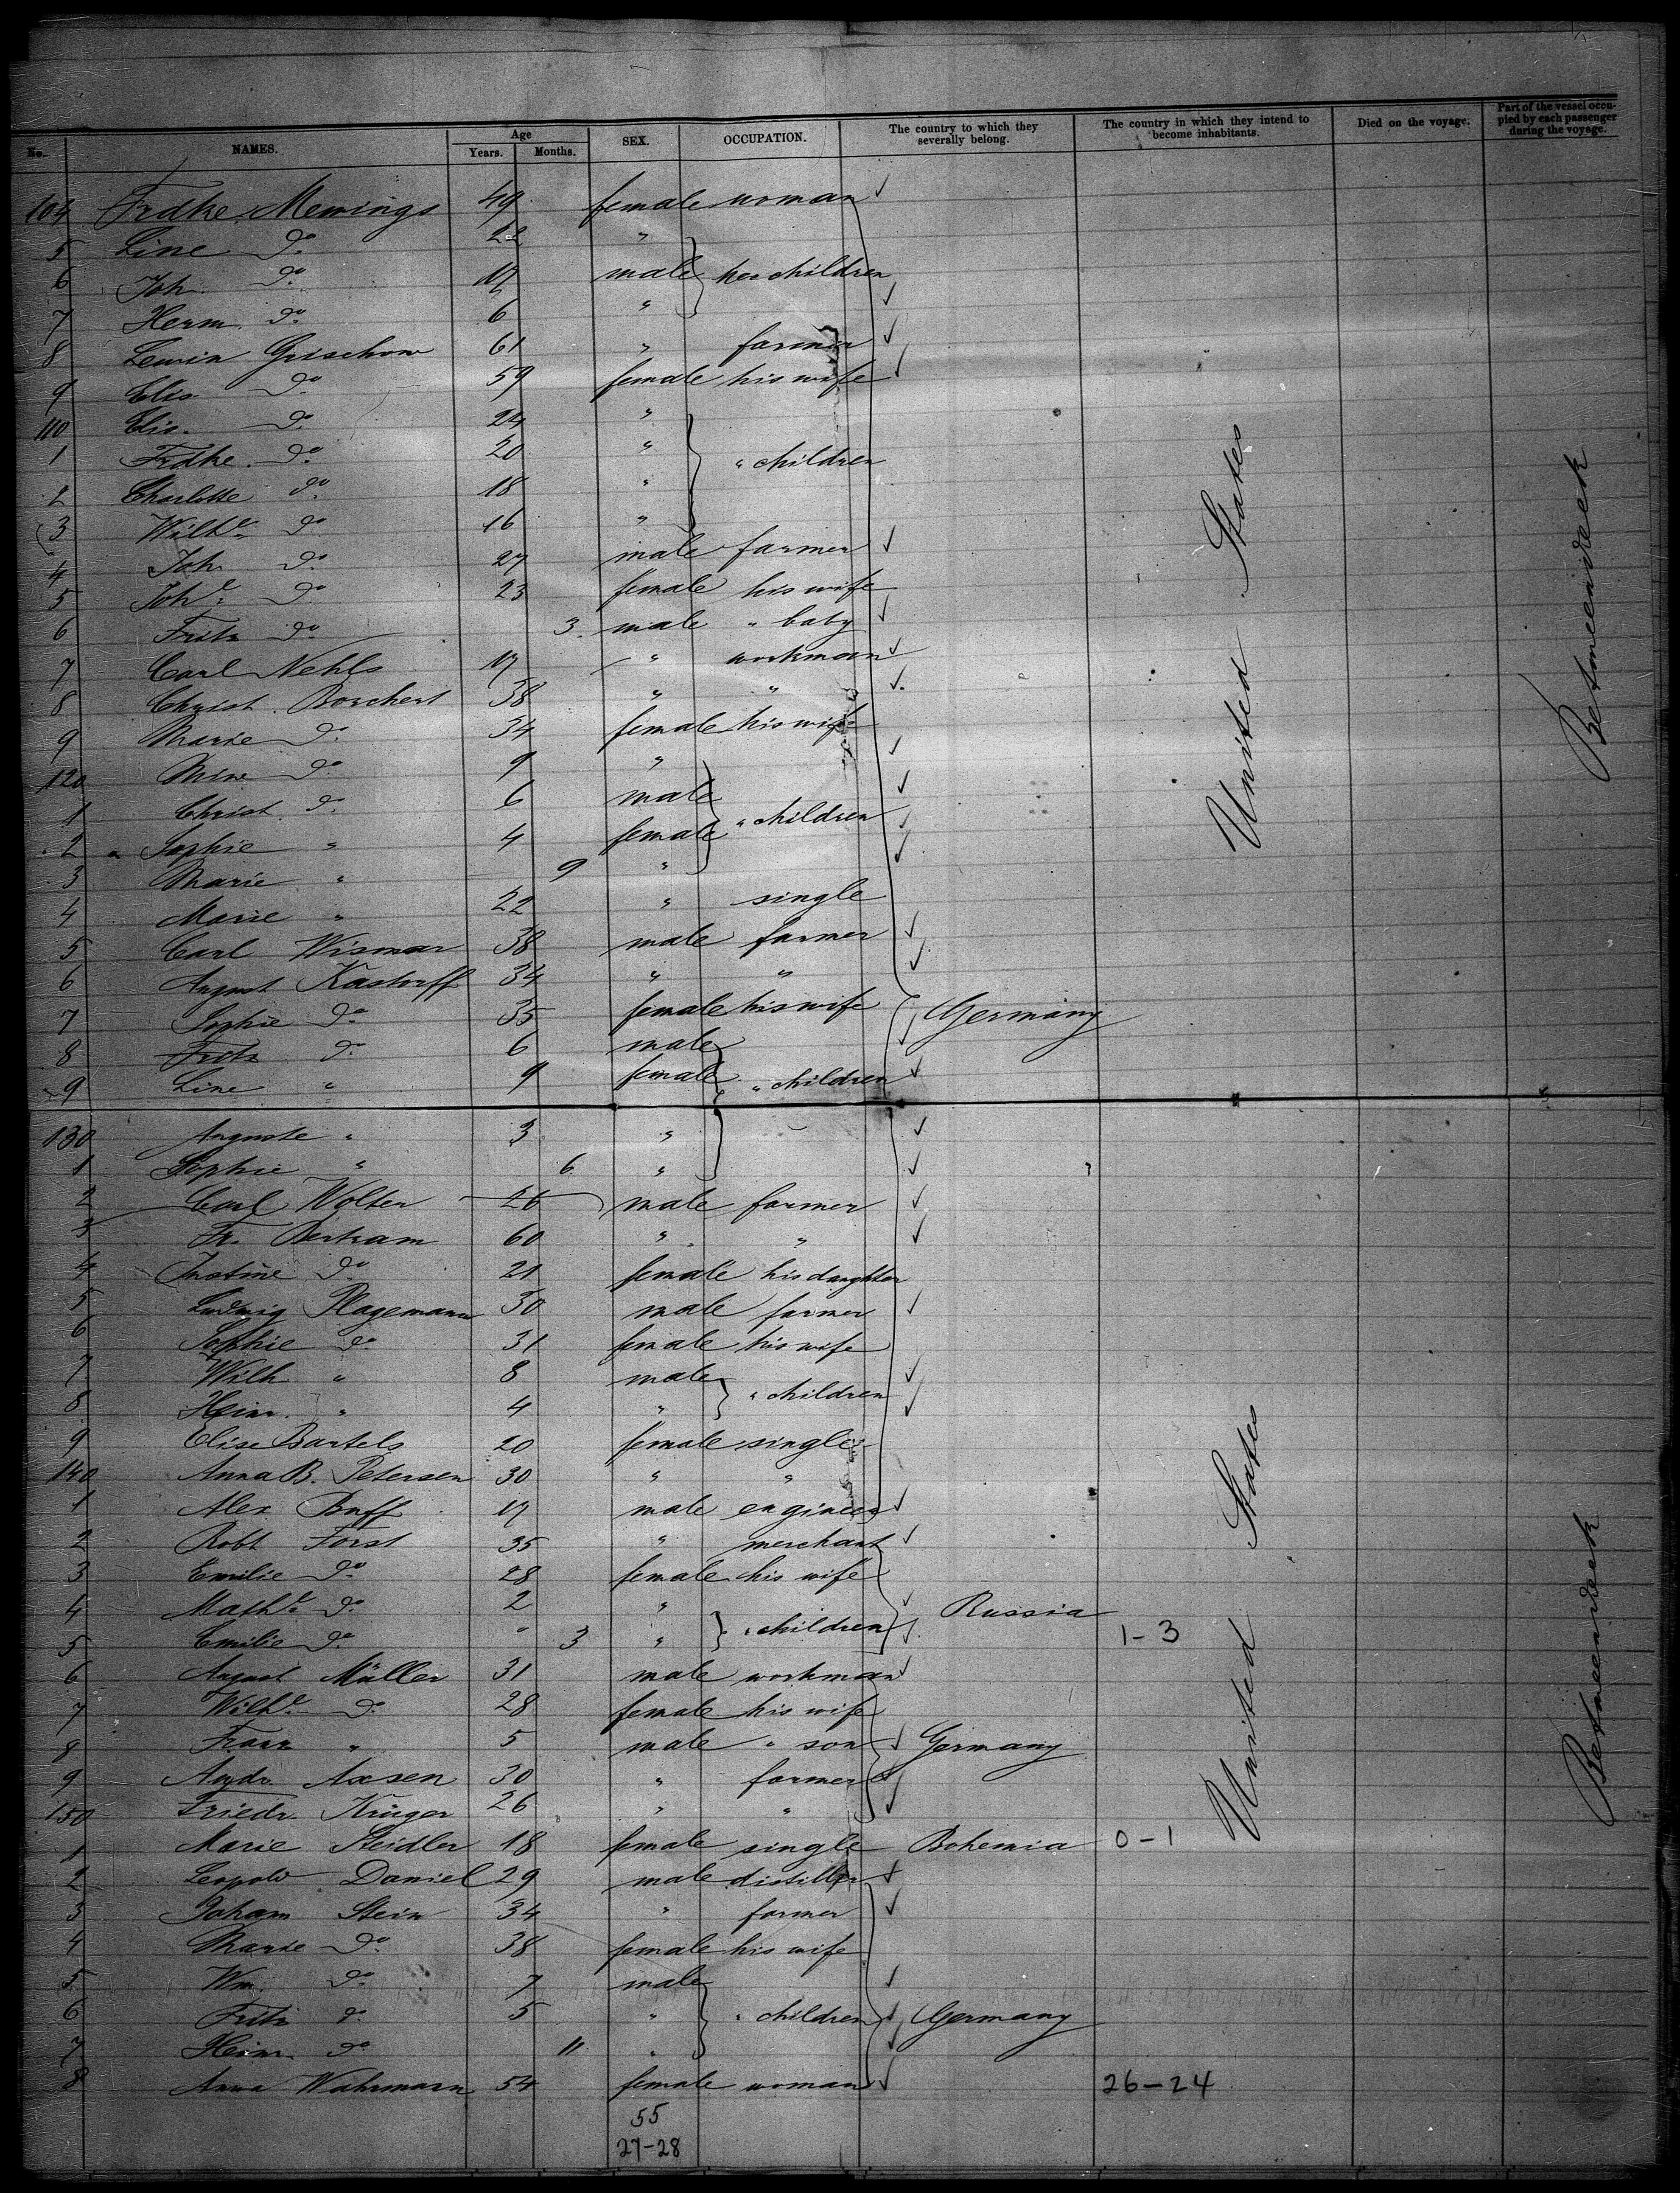 No. NAMES. Age Years. Months. SEX. OCCUPATION. The country to which they severally belong. The country in which they intend to become inhabitants. Died on the voyage. Part of the vessel occupied by each passenger during the voyage.
104 Frdke Mewings 49 female woman ✓
5 Line do 22 "
6 Joh. do 17 male her children
7 Herm. do 6 " ✓
8 Lewin Grischow 61 " farmer ✓
9 Elis do 59 female his wife ✓
110 Elis. do 24 "
1 Frdke. do 20 " " children
2 Charlotte do 18 "
3 Wilhe do 16 "
4 Joh do 27 male farmer ✓
5 Johe do 23 female his wife
6 Fritz do 3 male " baby ✓
7 Carl Nehls 17 " workman ✓
8 Christ. Borchert 38 " " ✓
9 Marie do 34 female his wife
120 Mine do 9 " ✓
1 Christ. do 6 male ✓
2 Sophie " 4 female " children ✓
3 Marie " 9 " ✓
4 Marie " 22 " single
5 Carl Wismar 38 male farmer ✓
6 August Kastorff 34 " " ✓
7 Sophie do 35 female his wife Germany
8 Fritz do 6 male ✓
9 Line " 9 female " children ✓
130 Auguste " 3 " ✓
1 Sophie " 6 " ✓
2 Carl Wolter 26 male farmer ✓
3 Fr. Bertram 60 " " ✓
4 Justine do 21 female his daughter
5 Ludwig Plagemann 30 male farmer ✓
6 Sophie do 31 female his wife
7 Wilh " 8 male ✓
8 Heinr. " 4 " " children ✓
9 Elise Bartels 20 female single
140 Anna B. Petersen 30 " "
1 Alex Buff 17 male engineer ✓
2 Robt Forst 35 " merchant ✓
3 Emilie do 28 female his wife
4 Mathe do 2 " ✓ Russia
5 Emilie do " 3 " " children ✓ 1-3
6 August Müller 31 male workman ✓
7 Wilhe do 28 female his wife
8 Franz " 5 male " son ✓ Germany
9 Andr. Axsen 30 " farmer ✓
150 Friedr. Krüger 26 " " ✓
1 Marie Steidler 18 female single Bohemia 0-1
2 Leopold Daniel 29 male distiller ✓
3 Johann Stein 34 " farmer ✓
4 Marie do 38 female his wife
5 Wm. do 7 male ✓
6 Fritz do 5 " " children ✓ Germany
7 Heinr. do 11 " ✓
8 Anna Wahrmann 54 female woman ✓ 26-24
55
27-28
United States
Betweendeck
United States
Betweendeck